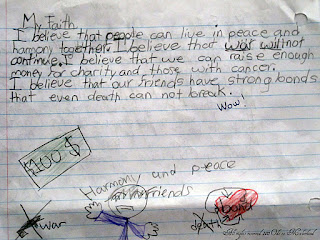 My Faith
I believe that people can live in peace and
harmony together. I believe that war will not
continue. I believe that we can raise enough
money for charity and those with cancer.
I believe that our friends have strong bonds
that even death can not break.
Wow!
100 $
Harmony and peace
friends
war
death